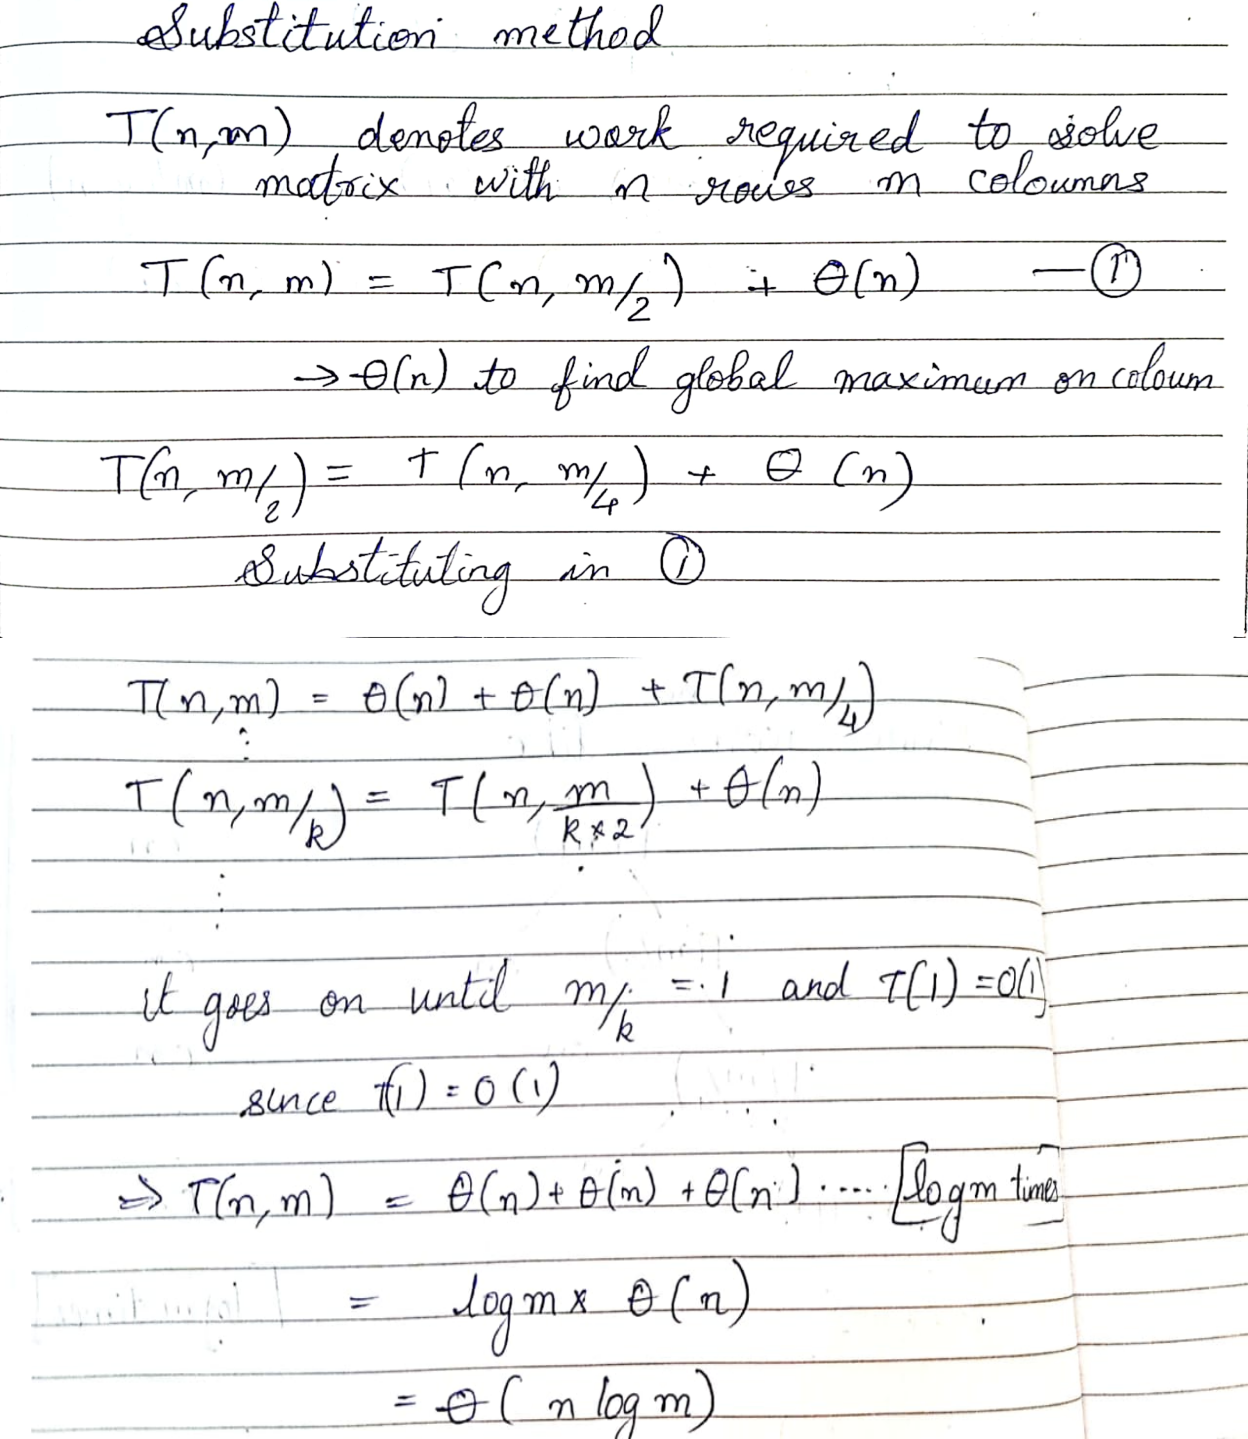 Substitution method
T(n,m) denotes work required to solve
matrix with n rows m coloumns
T(n, m) = T(n, m/2) + θ(n) —①
→ θ(n) to find global maximum on coloum
T(n, m/2) = T(n, m/4) + θ(n)
Substituting in ①
T(n,m) = θ(n) + θ(n) + T(n, m/4)
⋮
T(n, m/k) = T(n, m/k×2) + θ(n)
⋮
it goes on until m/k = 1 and T(1) = O(1)
since T(1) = O(1)
⇒ T(n,m) = θ(n) + θ(n) + θ(n) ..... [log m times]
= log m × θ(n)
= θ(n log m)